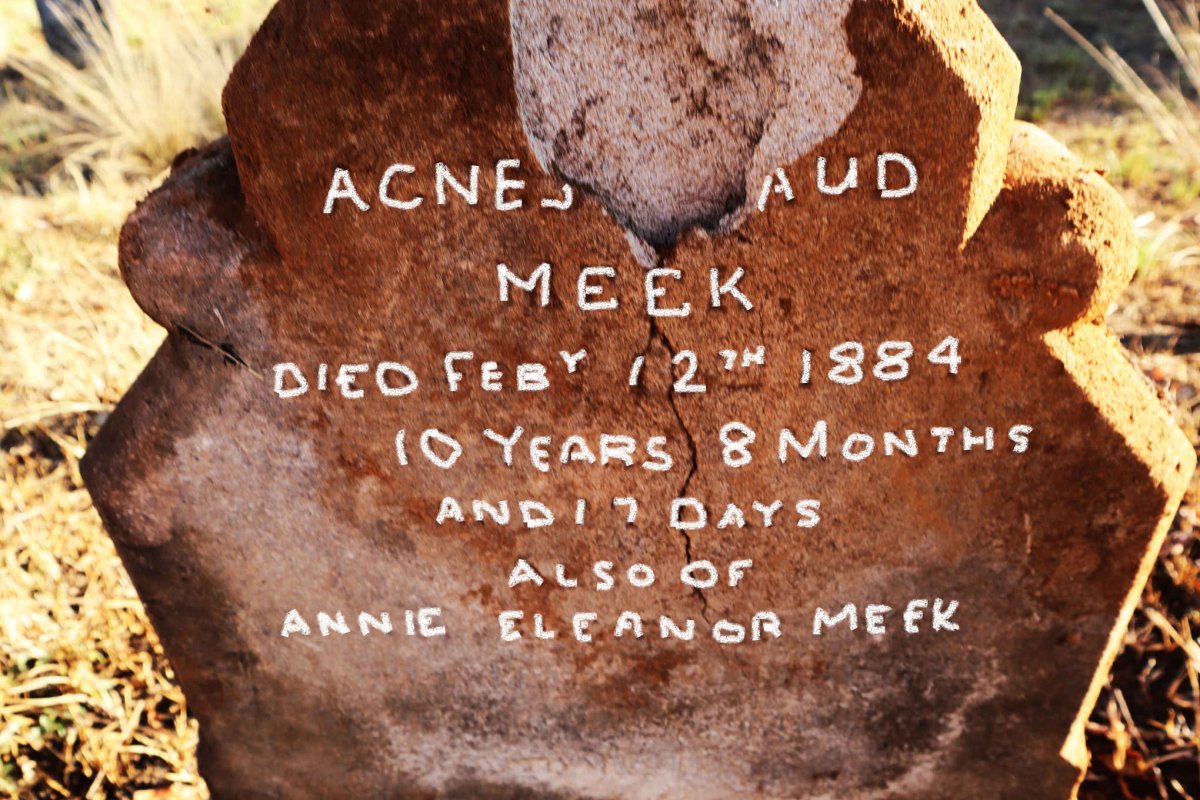 AGNES AUD
MEEK
DIED FEBY 12TH 1884
10 YEARS 8 MONTHS
AND 17 DAYS
ALSO OF
ANNIE ELEANOR MEEK